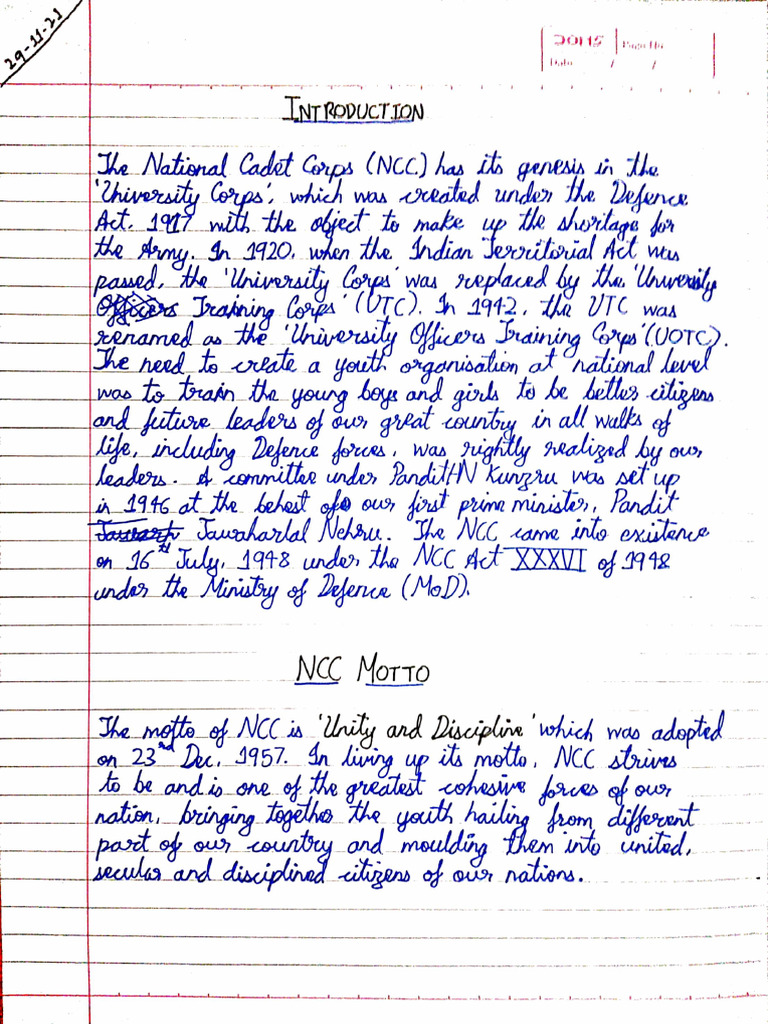 29-11-21
DOMS Page No
Date / /
INTRODUCTION
The National Cadet Corps (NCC) has its genesis in the
'University Corps', which was created under the Defence
Act, 1917 with the object to make up the shortage for
the Army. In 1920, when the Indian Territorial Act was
passed, the 'University Corps' was replaced by the 'University
Officers Training Corps' (UTC). In 1942, the UTC was
renamed as the 'University Officers Training Corps' (UOTC).
The need to create a youth organisation at national level
was to train the young boys and girls to be better citizens
and future leaders of our great country in all walks of
life, including Defence forces, was rightly realized by our
leaders. A committee under Pandit HN Kunzru was set up
in 1946 at the behest of our first prime minister, Pandit
Jawaharlal Nehru. The NCC came into existence
on 16th July, 1948 under the NCC Act XXXVI of 1948
under the Ministry of Defence (MoD).
NCC MOTTO
The motto of NCC is 'Unity and Discipline' which was adopted
on 23rd Dec, 1957. In living up its motto, NCC strives
to be and is one of the greatest cohesive forces of our
nation, bringing together the youth hailing from different
part of our country and moulding them into united,
secular and disciplined citizens of our nations.